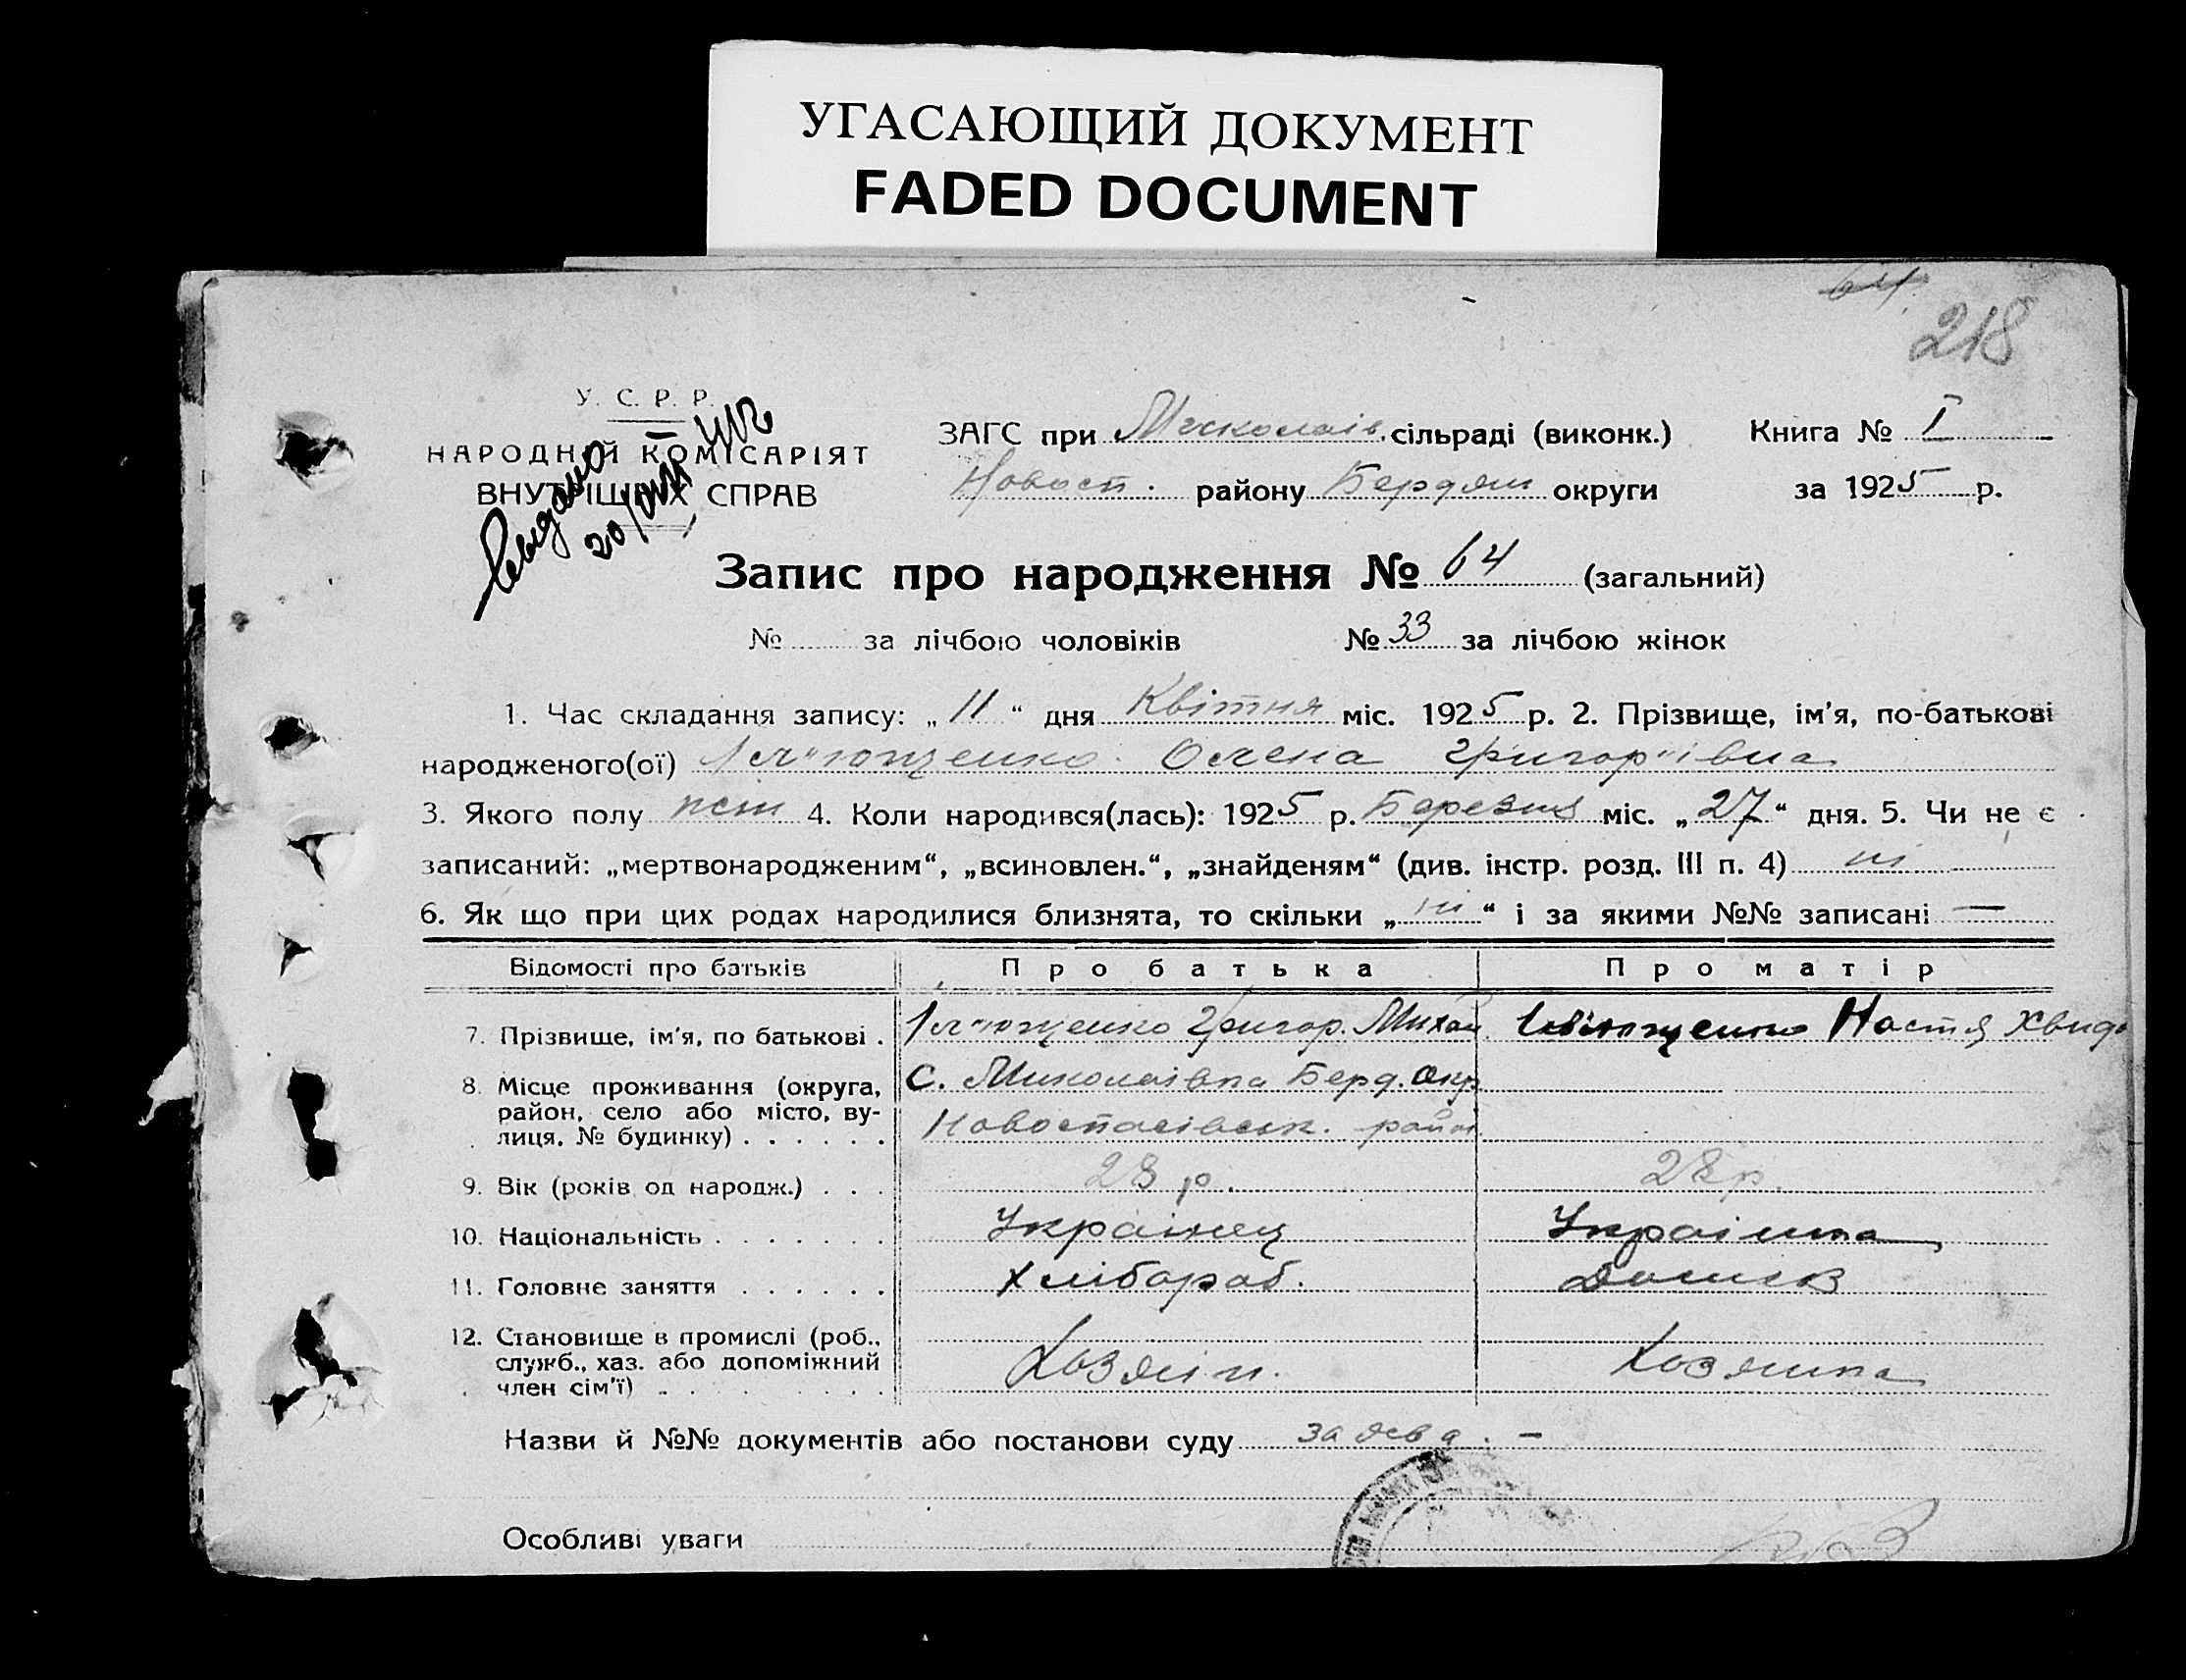 УГАСАЮЩИЙ ДОКУМЕНТ
FADED DOCUMENT
64.
218
У. С. Р. Р.
НАРОДНІЙ КОМІСАРІЯТ
ВНУТРІШНІХ СПРАВ
ЗАГС при Миколаів. сільраді (виконк.) Книга № I
Новосп. району Бердян округи за 1925 р.
Запис про народження № 64 (загальний)
№ за лічбою чоловіків № 33 за лічбою жінок
1. Час складання запису: „11“ дня Квітня міс. 1925 р. 2. Прізвище, ім'я, по-батькові
народженого(ої) Олена Григор"івна
3. Якого полу жін 4. Коли народився(лась): 1925 р. Березня міс. „27“ дня. 5. Чи не є
записаний: „мертвонародженим“, „всиновлен.“, „знайденям“ (див. інстр. розд. III п. 4) ні
6. Як що при цих родах народилися близнята, то скільки „ні“ і за якими №№ записані —
Відомості про батьків Про батька Про матір
7. Прізвище, ім'я, по батькові . Григор. Михай. Настя Хвид
8. Місце проживання (округа, район, село або місто, вулиця, № будинку) . . . . . . С. Миколаівка Берд. Окр.
Новоспасівськ. район.
9. Вік (років од народж.) . . . 28 р. 28 р.
10. Національність . . . . . . . Українец Українка
11. Головне заняття . . . . . . Хлібороб. Домов
12. Становище в промислі (роб., служб., хаз. або допоміжний член сім'ї) . . . . . . . . Хозяін. Хозяйка
Назви й №№ документів або постанови суду заява. –
Особливі уваги